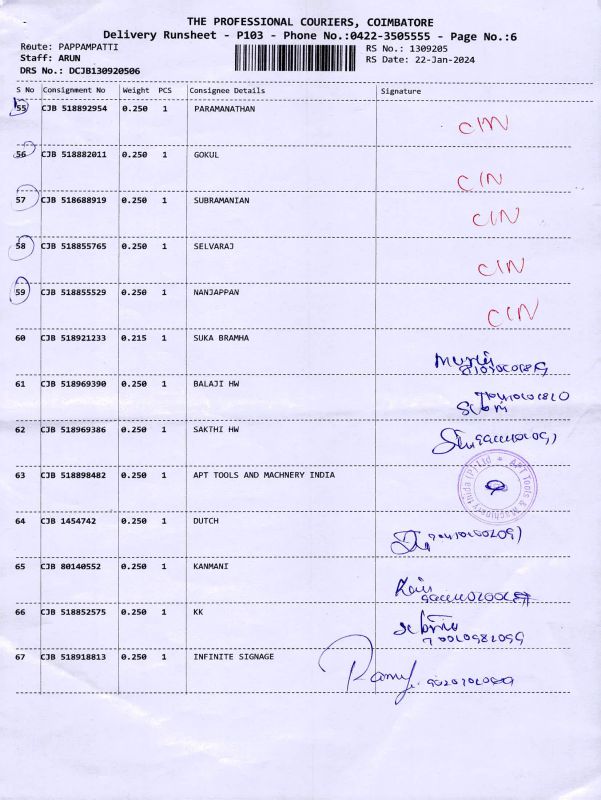 THE PROFESSIONAL COURIERS, COIMBATORE
Delivery Runsheet - P103 - Phone No.:0422-3505555 - Page No.:6
Route: PAPPAMPATTI RS No.: 1309205
Staff: ARUN RS Date: 22-Jan-2024
DRS No.: DCJB130920506
S No Consignment No Weight PCS Consignee Details Signature
55 CJB 518892954 0.250 1 PARAMANATHAN CIN
56 CJB 518882011 0.250 1 GOKUL CIN
57 CJB 518688919 0.250 1 SUBRAMANIAN CIN
58 CJB 518855765 0.250 1 SELVARAJ CIN
59 CJB 518855529 0.250 1 NANJAPPAN CIN
60 CJB 518921233 0.215 1 SUKA BRAMHA
61 CJB 518969390 0.250 1 BALAJI HW
62 CJB 518969386 0.250 1 SAKTHI HW
63 CJB 518898482 0.250 1 APT TOOLS AND MACHNERY INDIA
APT Tools & Machinery India (P) Ltd
64 CJB 1454742 0.250 1 DUTCH
65 CJB 80140552 0.250 1 KANMANI
66 CJB 518852575 0.250 1 KK
67 CJB 518918813 0.250 1 INFINITE SIGNAGE